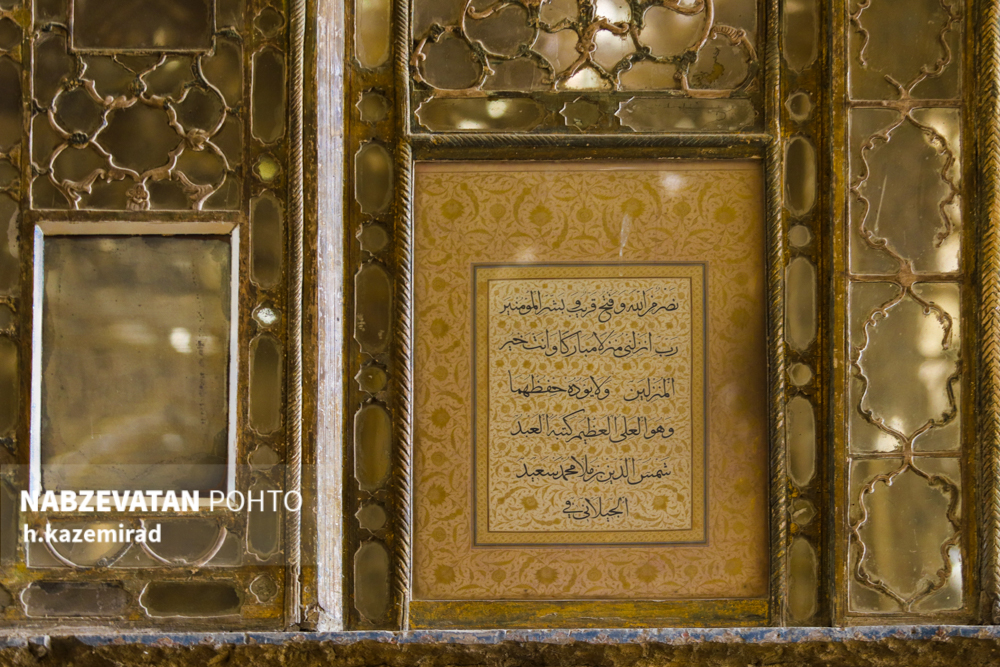 نصر من الله و فتح قريب و بشر المؤمنين
رب انزلنى منزلا مباركا وانت خير
المنزلين ولا يوده حفظهما
وهو العلى العظيم كتبه العبد
شمس الدين بن ملا محمد سعيد
الجيلانى فى
NABZEVATAN POHTO
h.kazemirad